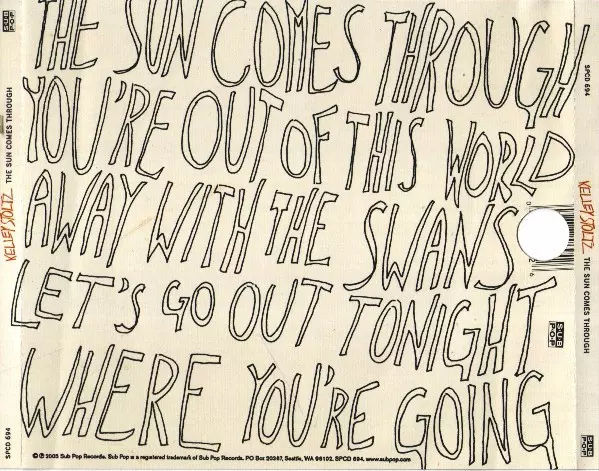 THE SUN COMES THROUGH
YOU'RE OUT OF THIS WORLD
AWAY WITH THE SWANS
LET'S GO OUT TONIGHT
WHERE YOU'RE GOING
© ℗ 2005 Sub Pop Records. Sub Pop is a registered trademark of Sub Pop Records. PO Box 20367, Seattle, WA 98102. SPCD 694. www.subpop.com
SUB POP
KELLEY STOLTZ THE SUN COMES THROUGH
SPCD 694
SPCD 694
KELLEY STOLTZ THE SUN COMES THROUGH
SUB POP
SUB POP